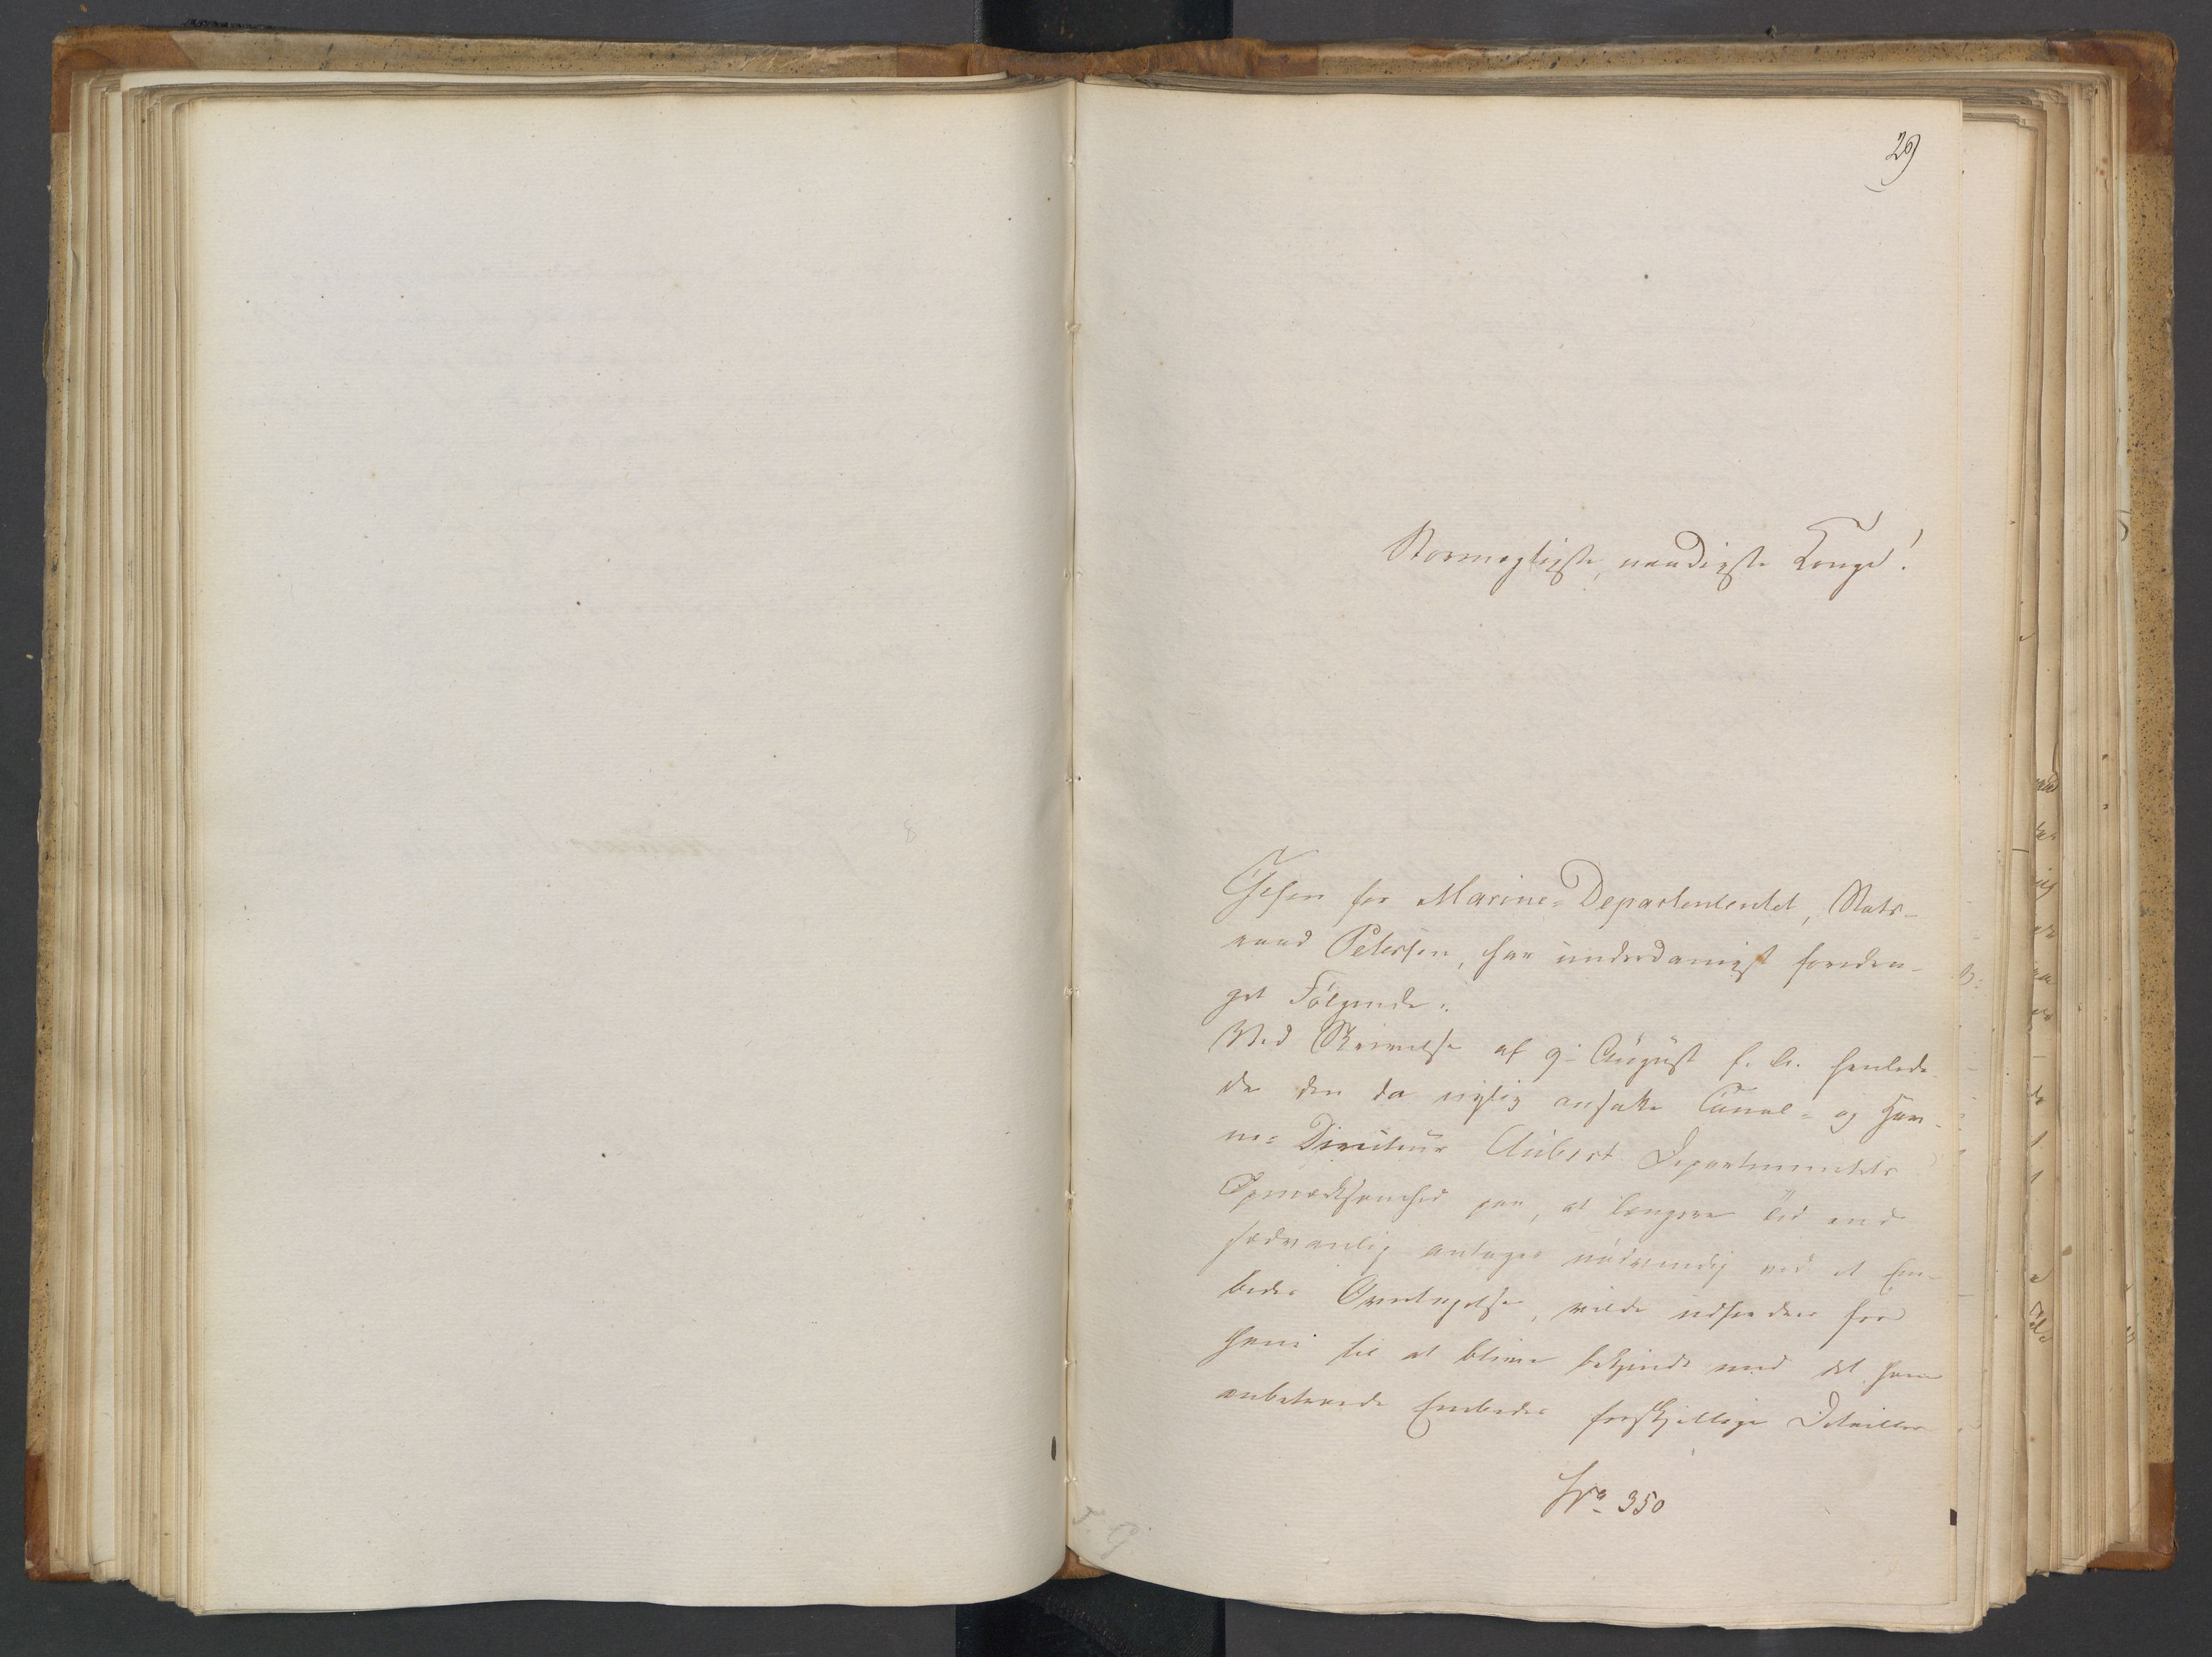 29
Stormægtigste, naadigste Konge!
Chefen for Marine-Departementet, Stats-
raad Petersen, har underdanigst foredra-
get Følgende:
Ved Skrivelse af 9de August f. A. henled-
de den da nylig ansatte Canal- og Hav-
ne-Directeur Aubert Departementets
Opmærksomhed paa, at længere Tid end
sædvanlig antages nødvendig ved et Em-
bedes Overtagelse, vilde udfordres for
ham til at blive bekjendt med det ham
anbetroede Embedes forskjellige Detailler
No 350
8